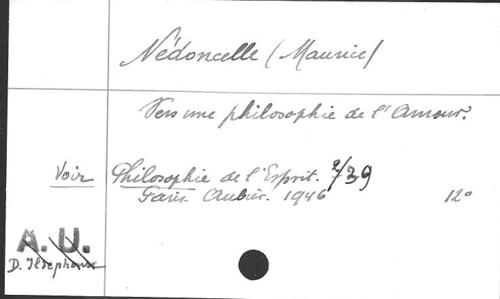 Nédoncelle (Maurice)
Vers une philosophie de l'Amour.
Voir Philosophie de l'Esprit. 2/39
Paris. Aubier. 1946 12°
A. U.
D. Ildephonse